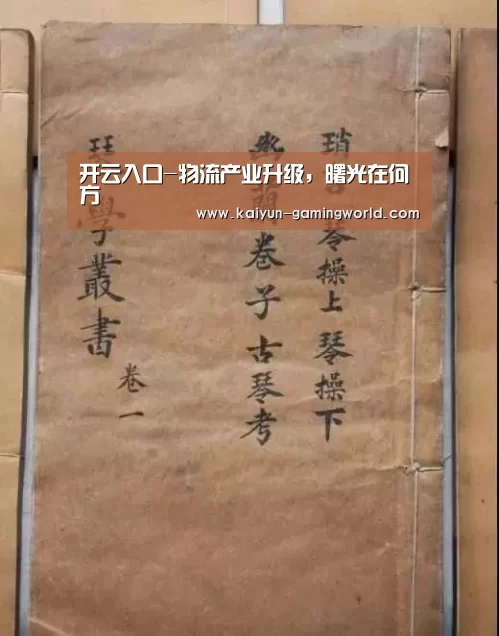 开云入口-物流产业升级，曙光在何
方
www.kaiyun-gamingworld.com
琴操上 琴操下
卷子古琴考
學叢書 卷一